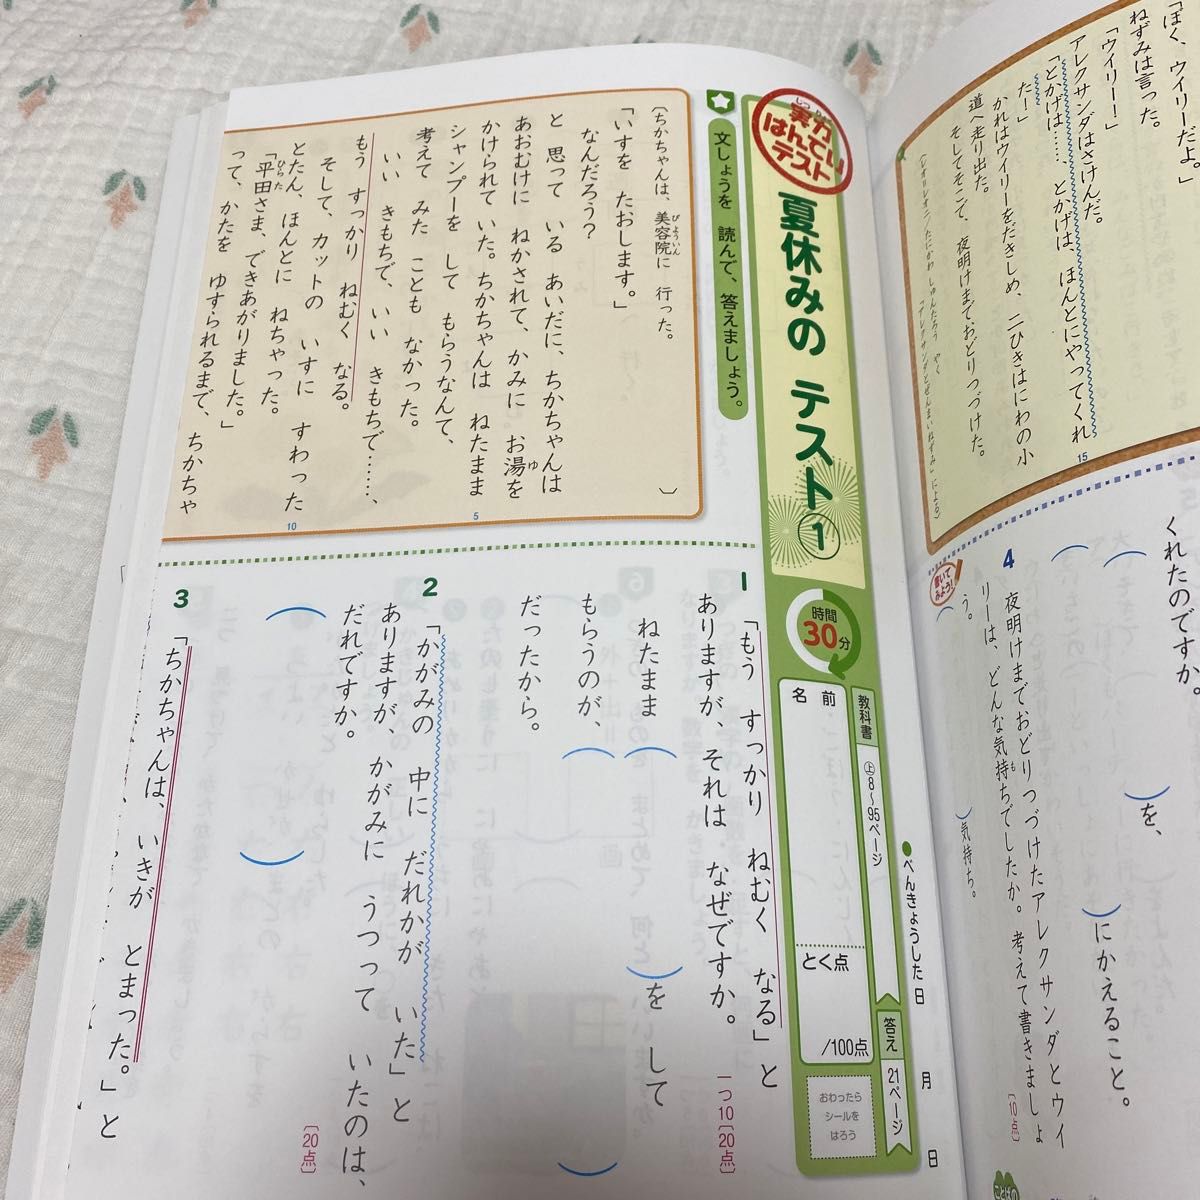 「ぼく、ウイリーだよ。」
ねずみは言った。
「ウイリー！」
アレクサンダはさけんだ。
「とかげは……、とかげは、ほんとにやってくれ
た！」
かれはウイリーをだきしめ、二ひきはにわの小
道へ走り出た。
そしてそこで、夜明けまでおどりつづけた。
15
くれたのですか。
を、
にかえること。
4
夜明けまでおどりつづけたアレクサンダとウイ
リーは、どんな気持ちでしたか。考えて書きましょ
う。
も
［10点］
書いてみよう！
気持ち。
実力
じつりょく
はんてい
テスト
夏休みの テスト①
時間
30分
名前
とく点
/100点
教科書
上8〜95ページ
答え
21ページ
おわったら
シールを
はろう
●べんきょうした日
月
日
文しょうを 読んで、答えましょう。
〔ちかちゃんは、美容院に 行った。〕
びよういん
「いすを たおします。」
なんだろう？
と 思って いる あいだに、ちかちゃんは
あおむけに ねかされて、かみに お湯を
ゆ
かけられて いた。ちかちゃんは ねたまま
5
シャンプーを して もらうなんて、
考えて みた ことも なかった。
いい きもちで、いい きもちで……、
もう すっかり ねむく なる。
そして、カットの いすに すわった
10
とたん、ほんとに ねちゃった。
「平田さま、できあがりました。」
ひらた
って、かたを ゆすられるまで、ちかちゃ
1
「もう すっかり ねむく なる」と
ありますが、それは なぜですか。
一つ10［20点］
ねたまま（　）を して
もらうのが、（　）
だったから。
2
「かがみの 中に だれかが いた」と
ありますが、かがみに うつって いたのは、
だれですか。
［20点］
（　）
3
「ちかちゃんは、いきが とまった。」と